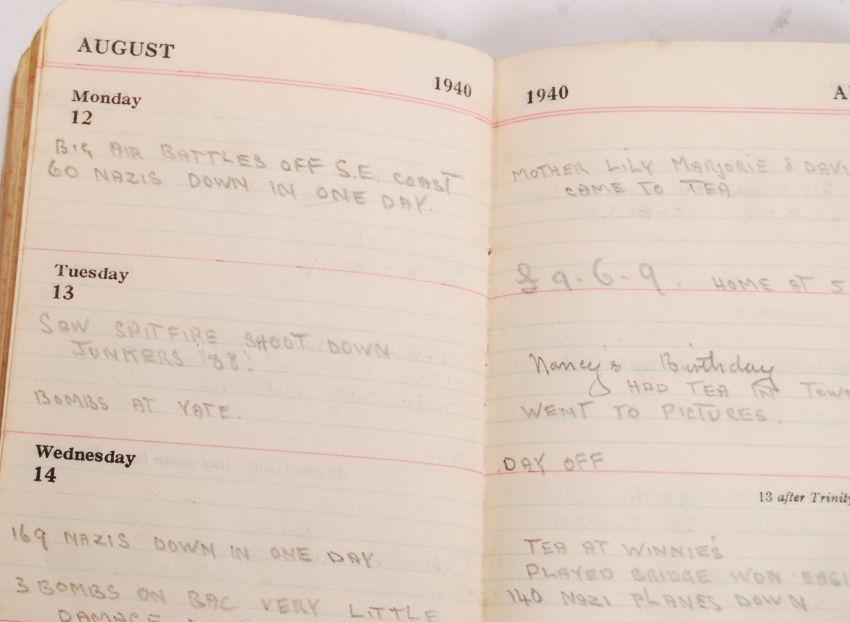 AUGUST
1940
Monday
12
BIG AIR BATTLES OFF S.E. COAST
60 NAZIS DOWN IN ONE DAY.
Tuesday
13
SAW SPITFIRE SHOOT DOWN
JUNKERS "88".
BOMBS AT YATE.
Wednesday
14
169 NAZIS DOWN IN ONE DAY
3 BOMBS ON BAC VERY LITTLE
DAMAGE
1940
MOTHER LILY MARJORIE & DAVI
CAME TO TEA
£9-6-9. HOME AT 5
Nancy's Birthday
HAD TEA IN TOWN
WENT TO PICTURES.
DAY OFF
13 after Trinity
TEA AT WINNIE'S
PLAYED BRIDGE WON EASI
140 NAZI PLANES DOWN.